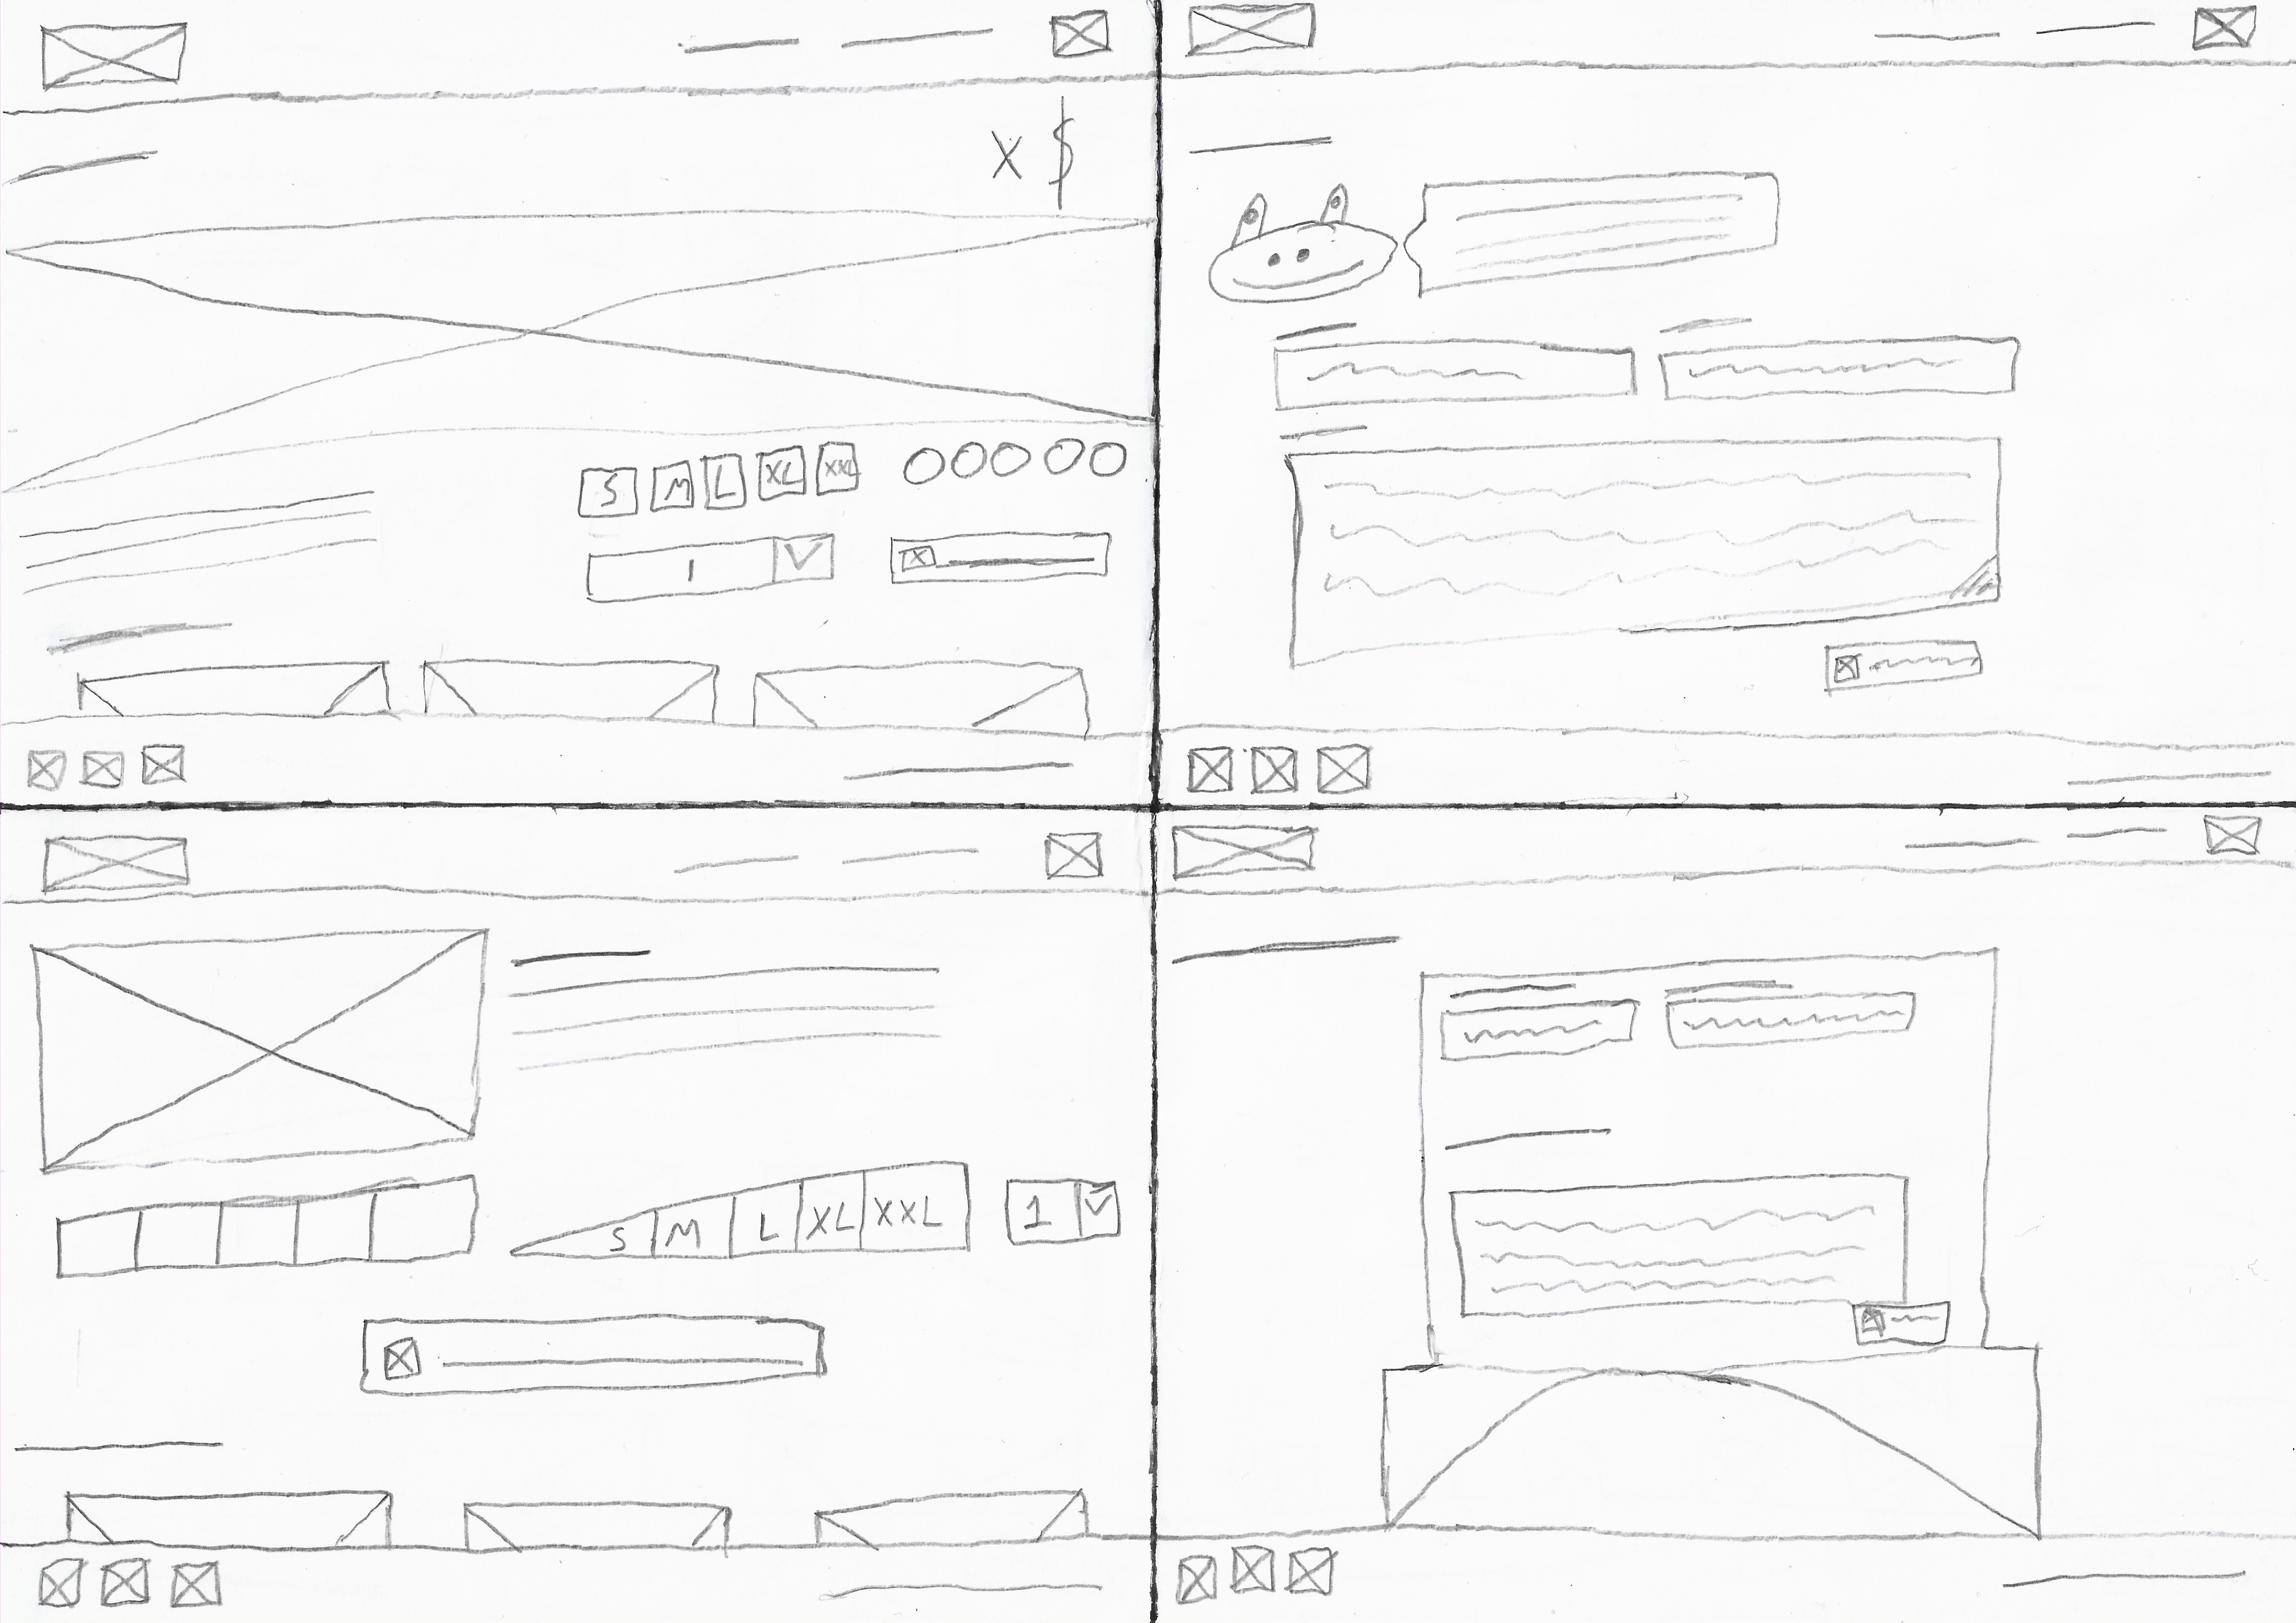 X $
S M L XL XXL
1
S M L XL XXL
1